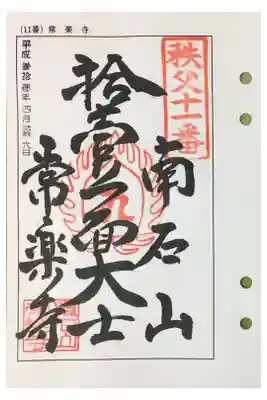 (11番) 常楽寺
平成 参拾 壱年 四月 弐拾六日
秩父十一番
南石山
拾壹面大士
常楽寺